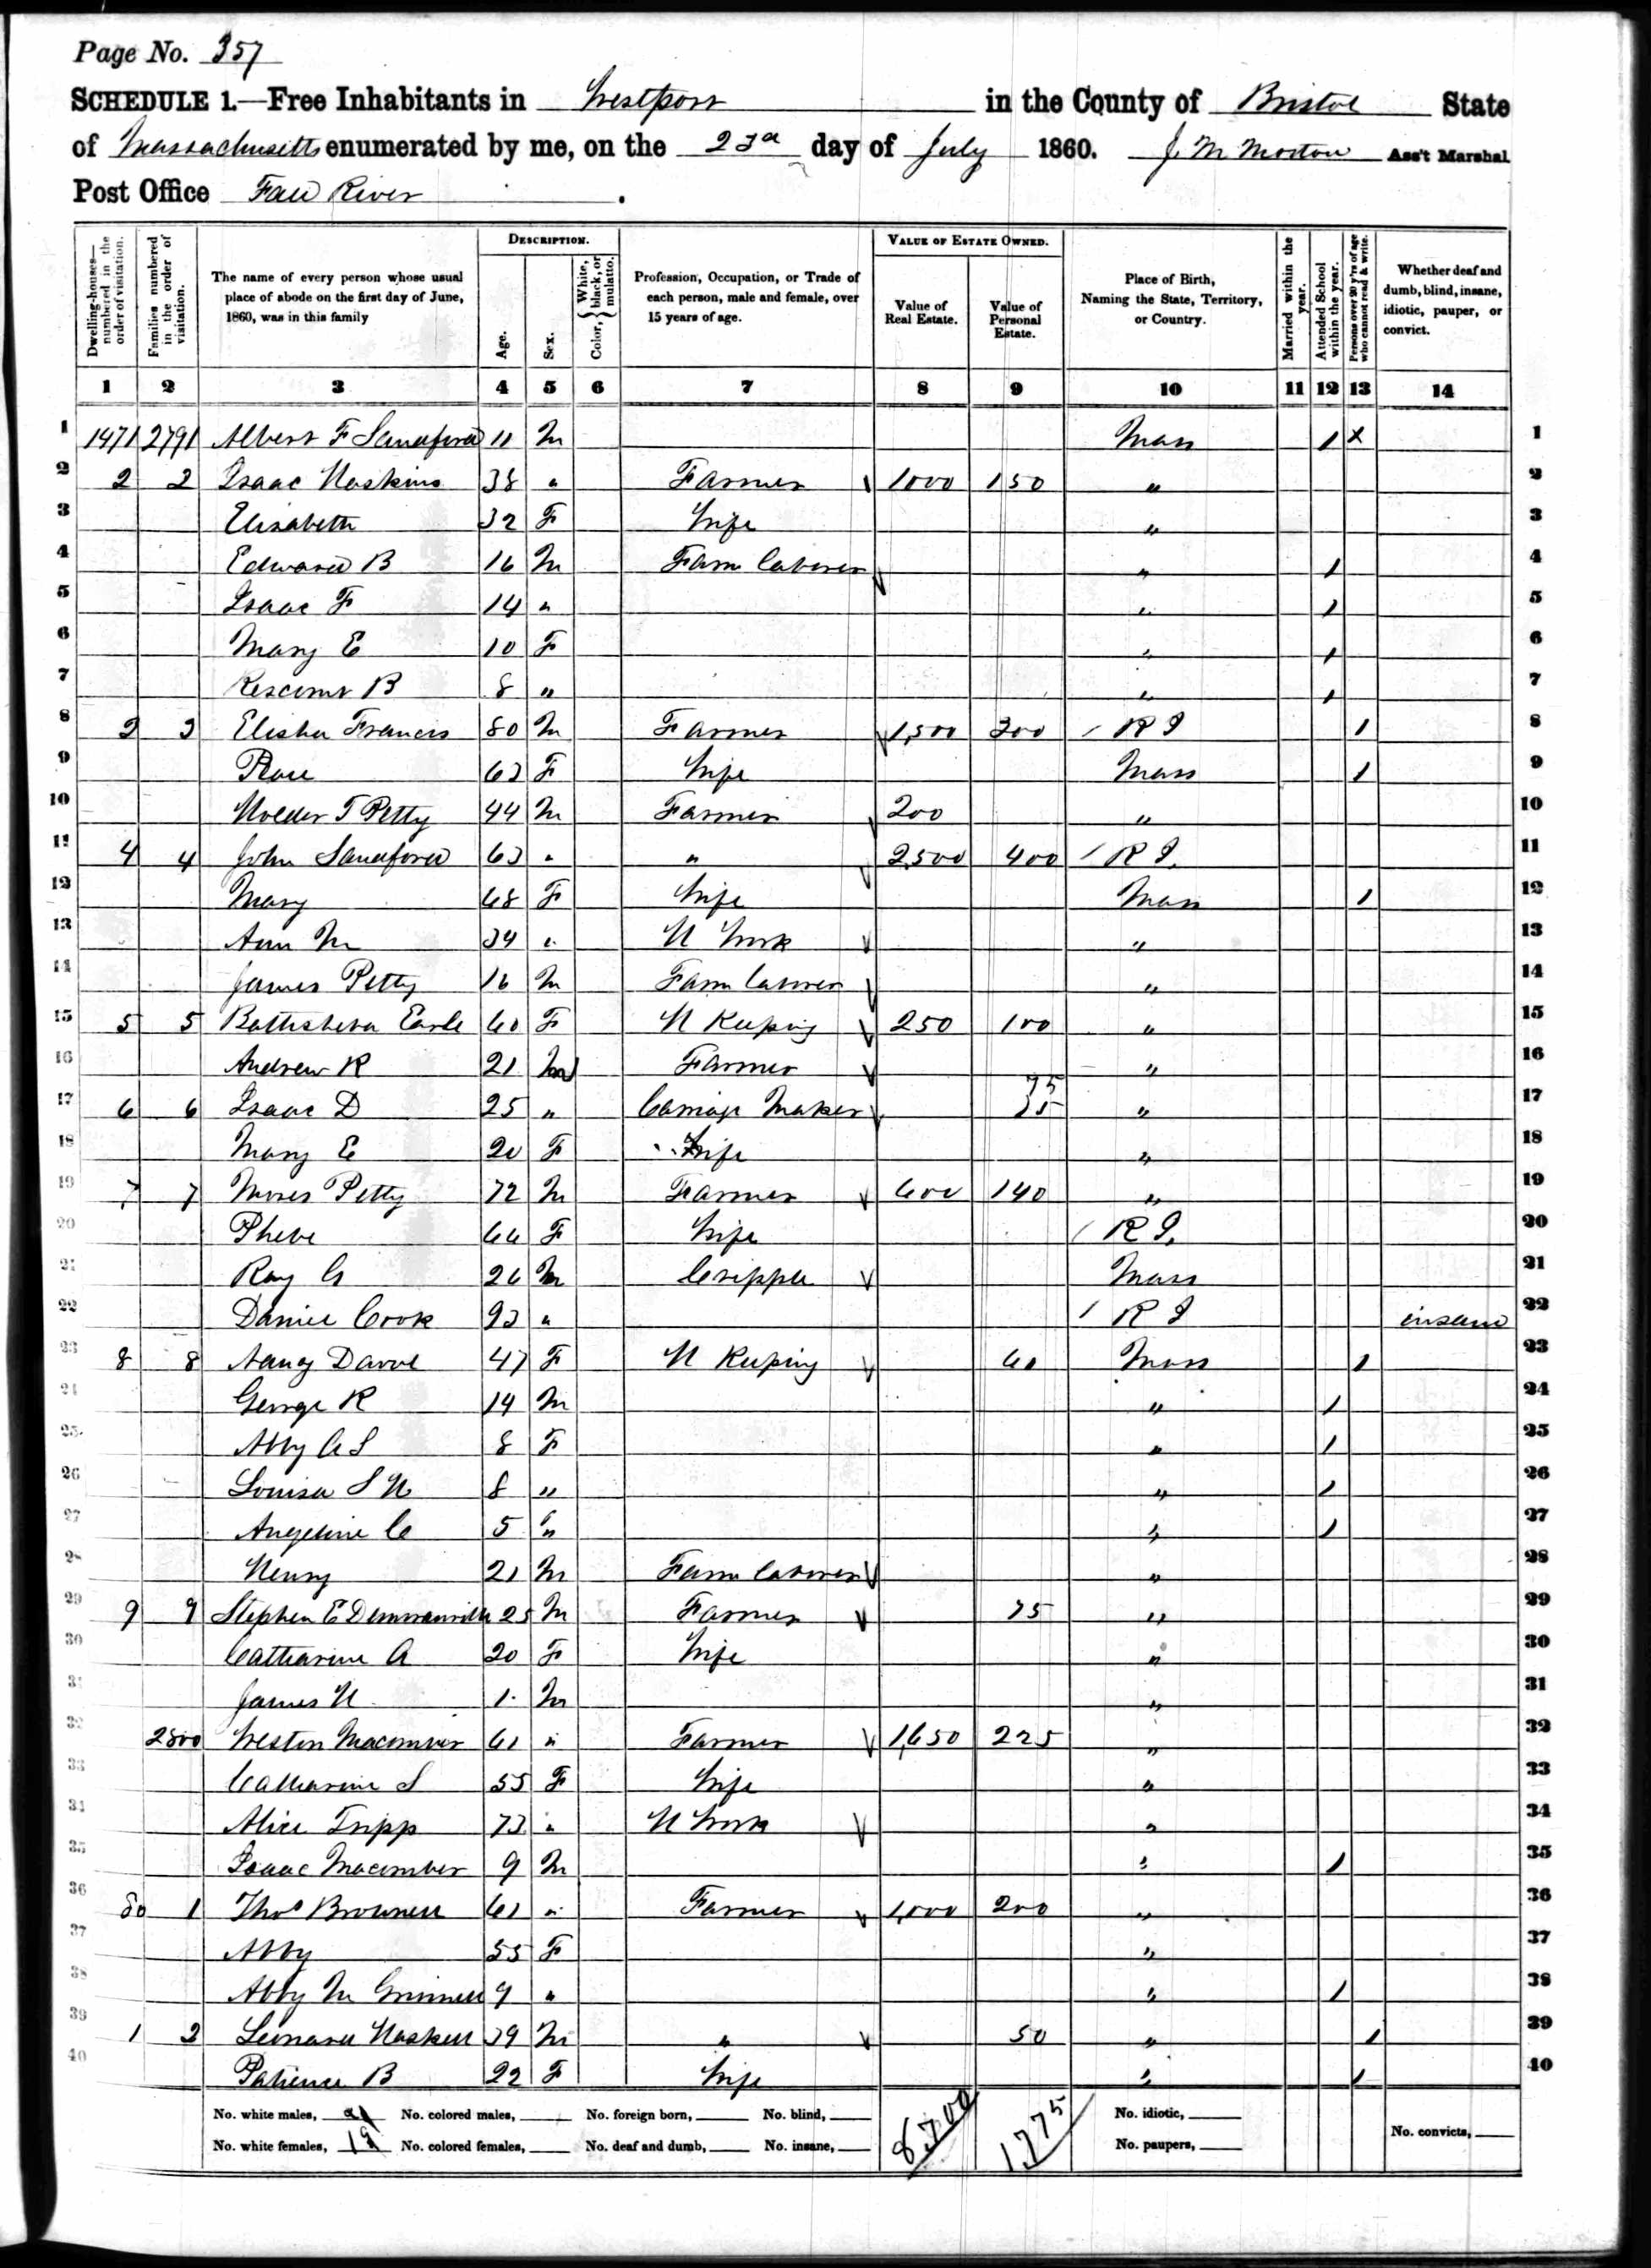 Page No. 357
SCHEDULE 1.—Free Inhabitants in Westport in the County of Bristol State
of Massachusetts enumerated by me, on the 23d day of July 1860. J. M. Morton Ass't Marshal
Post Office Fall River.
Dwelling-houses—numbered in the order of visitation. Families numbered in the order of visitation. The name of every person whose usual place of abode on the first day of June, 1860, was in this family DESCRIPTION. Age. Sex. Color, {White, black, or mulatto. Profession, Occupation, or Trade of each person, male and female, over 15 years of age. VALUE OF ESTATE OWNED. Value of Real Estate. Value of Personal Estate. Place of Birth, Naming the State, Territory, or Country. Married within the year. Attended School within the year. Persons over 20 y'rs of age who cannot read & write. Whether deaf and dumb, blind, insane, idiotic, pauper, or convict.
1 2 3 4 5 6 7 8 9 10 11 12 13 14
1 1471 2791 Albert F Sandford 11 M Mass / x 1
2 2 2 Isaac Haskins 38 " Farmer 1000 150 " 2
3 Elizabeth 32 F Wife " 3
4 Edward B 16 M Farm laborer " / 4
5 Isaac F 14 " " / 5
6 Mary E 10 F " / 6
7 B 8 " " / 7
8 3 3 Elisha Francis 80 M Farmer 1,500 300 / R I / 8
9 63 F Wife Mass / 9
10 Holder T Petty 44 M Farmer 200 " 10
11 4 4 John Sandford 63 " " 2,500 400 / R I. 11
12 Mary 68 F Wife Mass / 12
13 Ann M 34 " H Work " 13
14 James Petty 16 M Farm laborer " 14
15 5 5 Bathsheba Earle 60 F H Keeping 250 100 " 15
16 Andrew R 21 M Farmer " 16
17 6 6 Isaac D 25 " Carriage Maker 75 " 17
18 Mary E 20 F Wife " 18
19 7 7 Moses Petty 72 M Farmer 600 140 " 19
20 Phebe 66 F Wife / R I. 20
21 Ray G 26 M Cripple Mass 21
22 Daniel Cook 93 " / R I insane 22
23 8 8 Nancy 47 F H Keeping 60 Mass / 23
24 George R 14 M " / 24
25 Abby A S 8 F " / 25
26 Louisa S H 8 " " / 26
27 Angeline C 5 " " / 27
28 Henry 21 M Farm laborer " 28
29 9 9 Stephen E Demoranville 25 M Farmer 75 " 29
30 Catharine A 20 F Wife " 30
31 James H 1 M " 31
32 2800 Weston Macomber 61 " Farmer 1,650 225 " 32
33 Catharine S 55 F Wife " 33
34 Alice Tripp 73 " H Work " 34
35 Isaac Macomber 9 M " / 35
36 80 1 Thos Brownell 61 " Farmer 1,000 200 " 36
37 Abby 55 F " 37
38 Abby M Grinnell 9 " " / 38
39 1 2 Leonard Haskell 39 M " 50 " / 39
40 Patience B 22 F Wife " / 40
No. white males, 21 No. colored males, No. foreign born, No. blind, 8,700 1,775 No. idiotic,
No. white females, 19 No. colored females, No. deaf and dumb, No. insane, No. paupers, No. convicts,